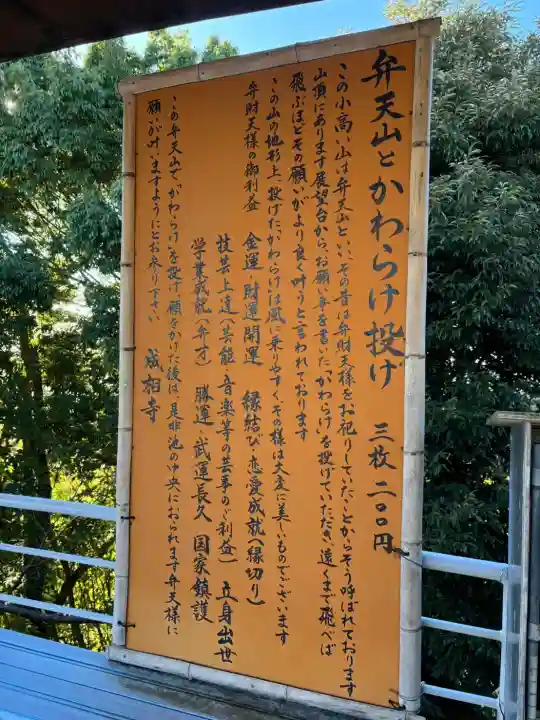 弁天山とかわらけ投げ 三枚 二〇〇円
この小高い山は弁天山といい、その昔は弁財天様をお祀りしていたことからそう呼ばれております
山頂にあります展望台から、お願い事を書いた「かわらけ」を投げていただき、遠くまで飛べば
飛ぶほどその願いがより良く叶うと言われております
この山の地形上、投げた「かわらけ」は風に乗りやすく、その様は大変に美しいものでございます
弁財天様の御利益 金運 財運 開運 縁結び・恋愛成就(縁切り)
技芸上達(芸能・音楽等の芸事のご利益) 立身出世
学業成就(弁才) 勝運 武運長久 国家鎮護
この弁天山で「かわらけ」を投げ願をかけた後は、是非池の中央におられます弁天様に
願いが叶いますようにとお参り下さい 成相寺